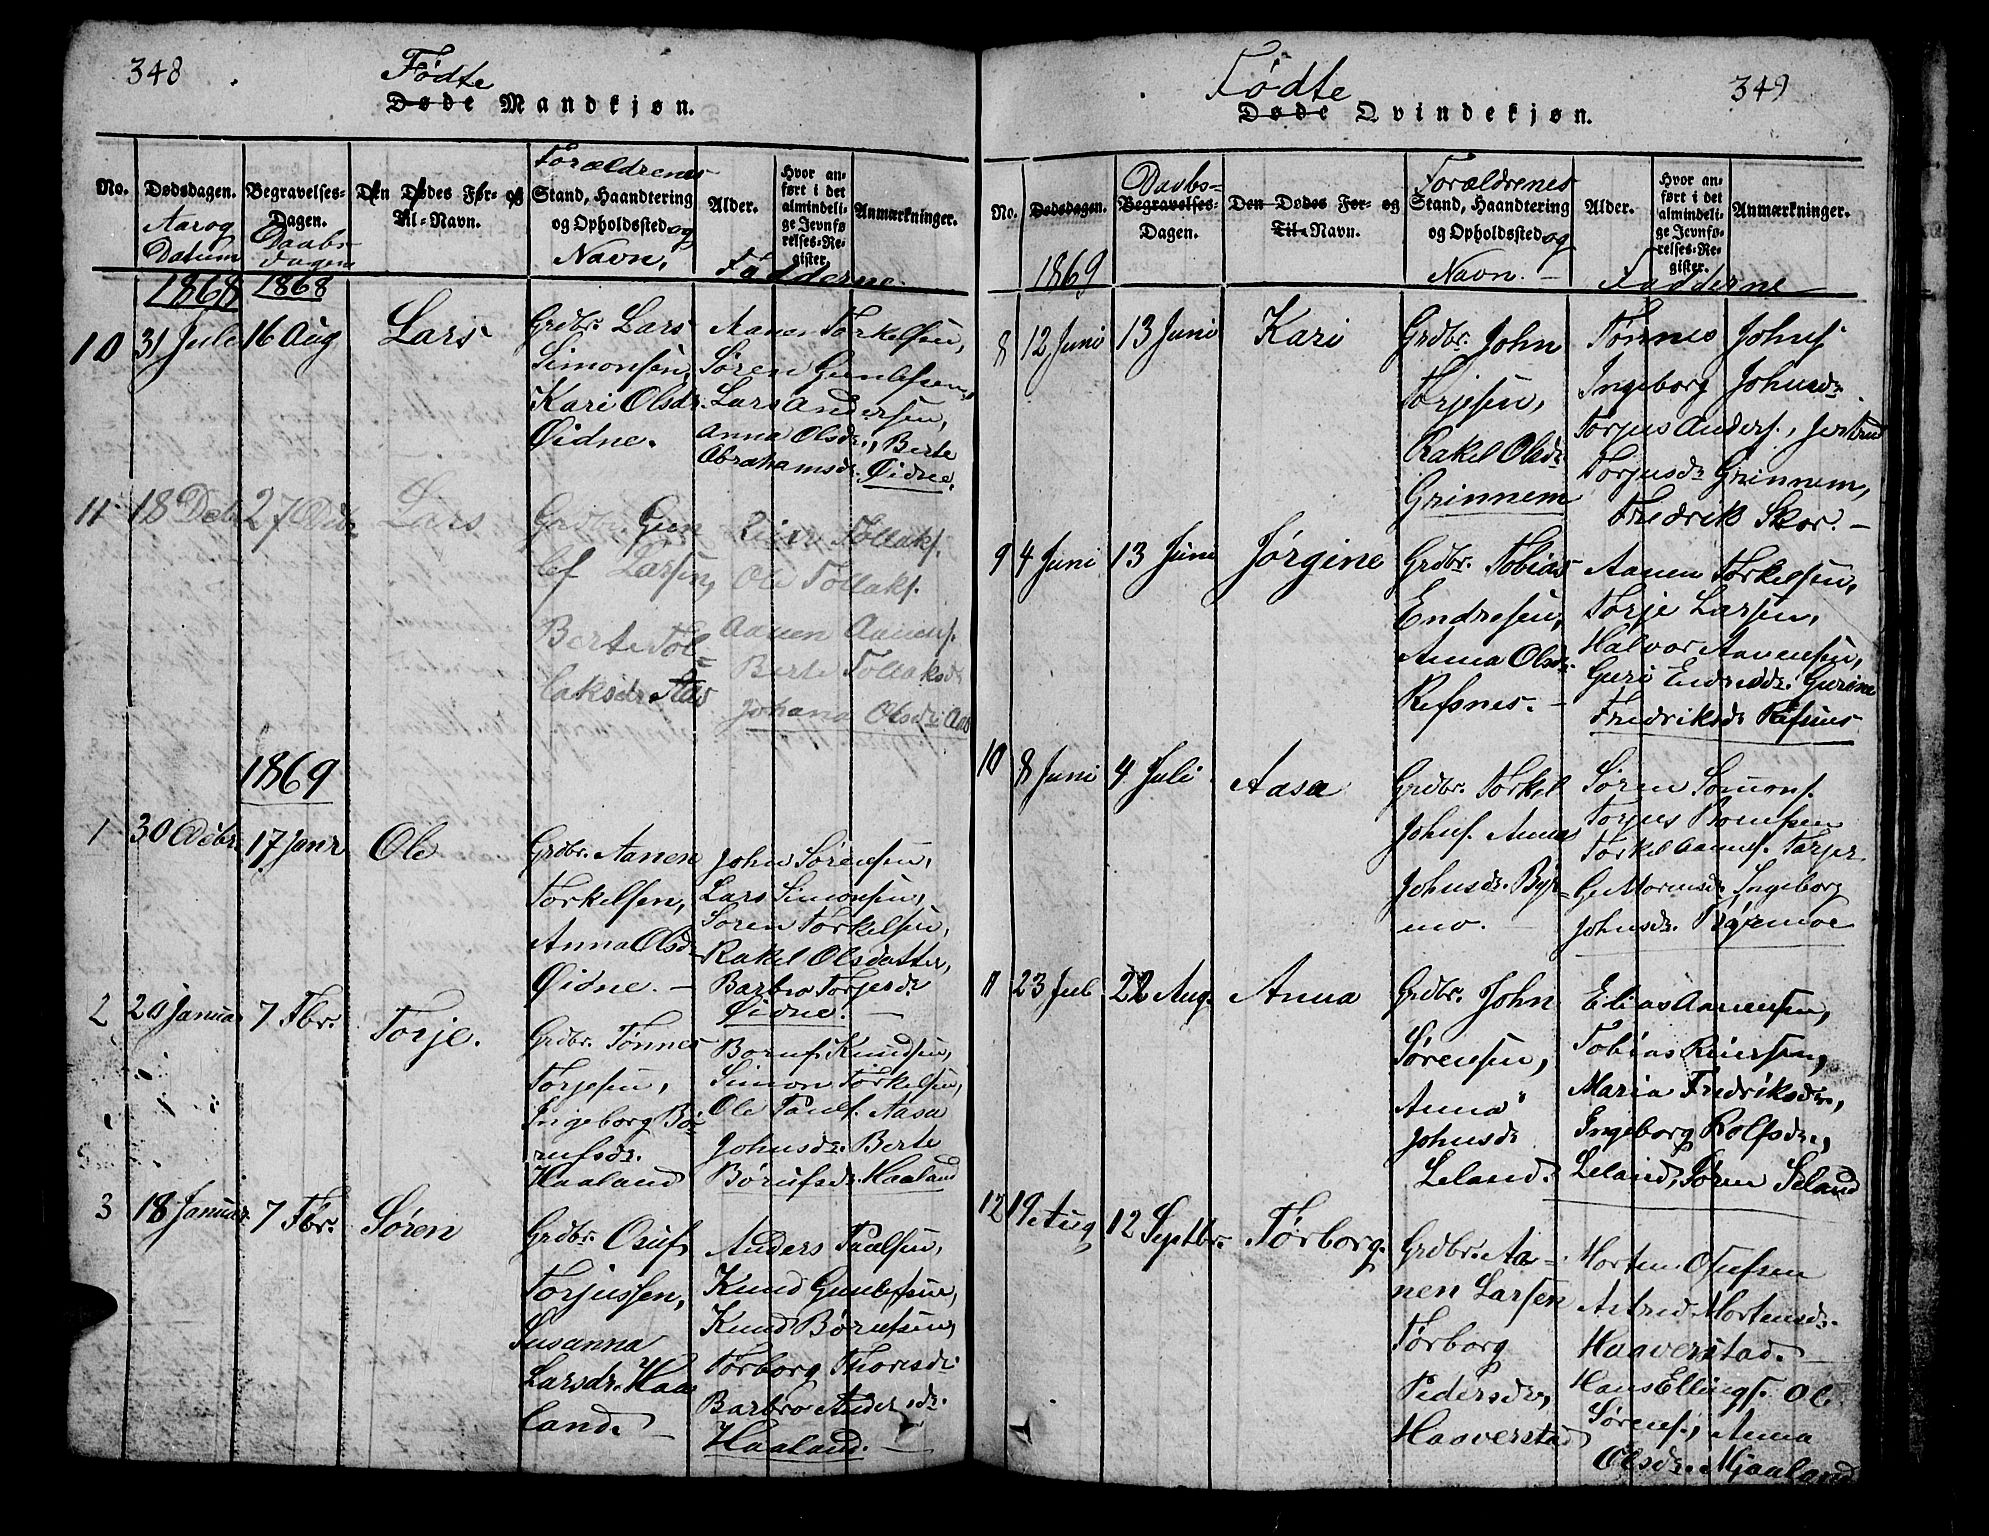 348
Fødte
Døde Mandkjøn.
No.
Dødsdagen.
Aar og
Datum
Begravelses-
Dagen.
Daabs
dagen
Den Dødes For- og
Til-Navn.
Forældrenes
Stand, Haandtering
og Opholdssted og
Navn.
Alder.
Hvor an-
ført i det
almindeli-
ge Jevnfø-
relses-Re-
gister.
Anmærkninger.
Fadderne.
1868 1868
10 31 Juli 16 Aug Lars
Grdbr. Lars
Simonsen,
Kari Olsdr.
Øidne.
Aanen Torkelsen,
Søren Gunlefsen,
Lars Andersen,
Anna Olsdr., Berte
Abrahamsdr.
Øidne.
11 18 Debr 27 Debr. Lars
Grdbr. Gun
lef Larsen,
Berte Tol-
laksdr. Aas
Reier Tollaks.
Ole Tollaks.
Aanen Aanens.
Berte Tollaksdr
Johana Olsdr. Aas
1869
1 30 Debr. 17 Janr Ole
Grdbr. Aanen
Torkelsen,
Anna Olsdr
Øidne. —
John Sørensen,
Lars Simonsen,
Søren Torkelsen,
Rakel Olsdatter,
Barbro Torjesdr.
Øidne. —
2 20 Januar 7 Fbr. Torje.
Grdbr. Tønnes
Torjesen,
Ingeborg Bø-
rufsdr.
Haaland
Boruf Knudsen,
Simon Torkelsen,
Ole Pauls. Aasa
Johnsdr. Berte
Børufsdr. Haaland
3 18 Januar. 7 Fbr. Søren
Grdbr. Osuf
Torjussen,
Susanna
Larsdr. Haa
land. —
Anders Paalsen,
Knud Gunlefsen,
Knud Børufsen,
Tørborg Thoresdr.
Barbro Andersdr.
Haaland. —
349
Fødte
Døde Qvindekjøn.
No.
Dødsdagen.
1869
Daabs-
Begravelses-
Dagen.
Den Dødes For- og
Til-Navn.
Forældrenes
Stand, Haandtering
og Opholdssted og
Navn. —
Alder.
Hvor an-
ført i det
almindeli-
ge Jevnfø-
relses-Re-
gister.
Anmærkninger.
Fadderne
8 12 Juni 13 Juni Kari
Grdbr. John
Torjesen,
Rakel Olsdr.
Grinnem
Tønnes Johns.
Ingeborg Johnsdr.
Torjus Anders.,
Torjusdr Grinnem,
Fredrik Skor. —
9 4 Juni 13 Juni Jørgine
Grdbr. Tobias
Endresen,
Anna Olsdr.
Refsnes. —
Aanen Torkelsen,
Torje Larsen,
Halvor Aanensen,
Guri Endresdr. Gurine
Fredriksdr Refsnes
10 8 Juni 4 Juli Aasa
Grdbr. Torkel
Johns. Anna
Johnsdr.
mo.
Søren Simons.
Torjus
Torkel Aanens.
Ingeborg
Johnsdr.
11 23 Jul 22 Aug. Anna
Grdbr. John
Sørensen,
Anna
Johnsdr.
Leland.
Elias Aanensen,
Tobias Reiersen,
Maria Fredriksdr.,
Ingeborg Rolfsdr.,
Leland, Søren Seland
12 19 Aug 12 Septbr. Tørborg.
Grdbr. Aa-
nen Larsen
Tørborg
Pedersdr.,
Haaverstad
Morten Olufsen
Astrid Mortensdr.
Haaverstad. —
Hans Ellings. Ole
Sørens., Anna
Olsdr. Mjaaland